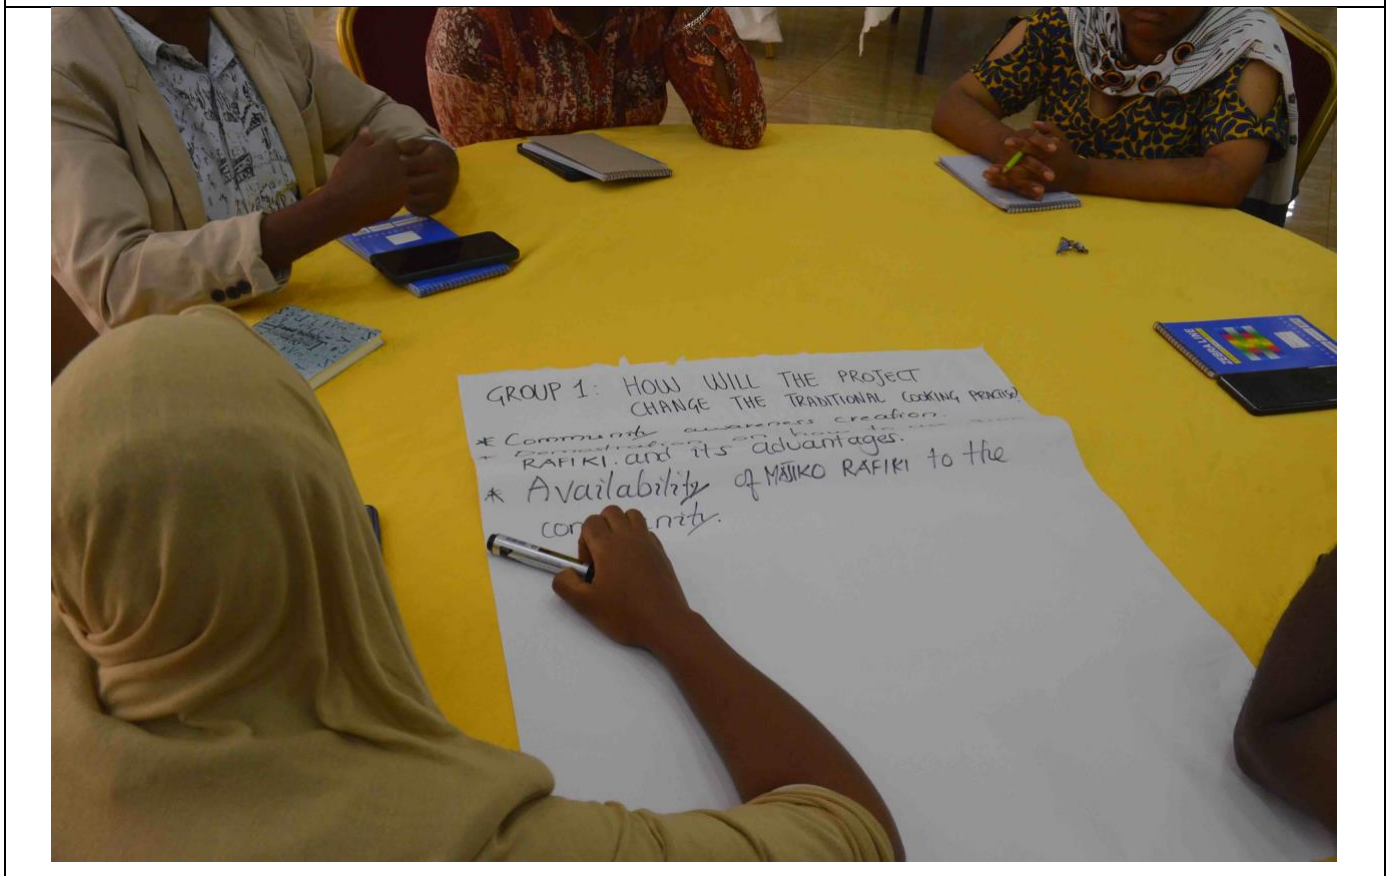 GROUP 1: HOW WILL THE PROJECT
CHANGE THE TRADITIONAL COOKING PRACTISE?
* Community awareness creation.
* Demostration on how to use
RAFIKI. and its advantages.
* Availability of MAJIKO RAFIKI to the
community.
ZEBRA LINE